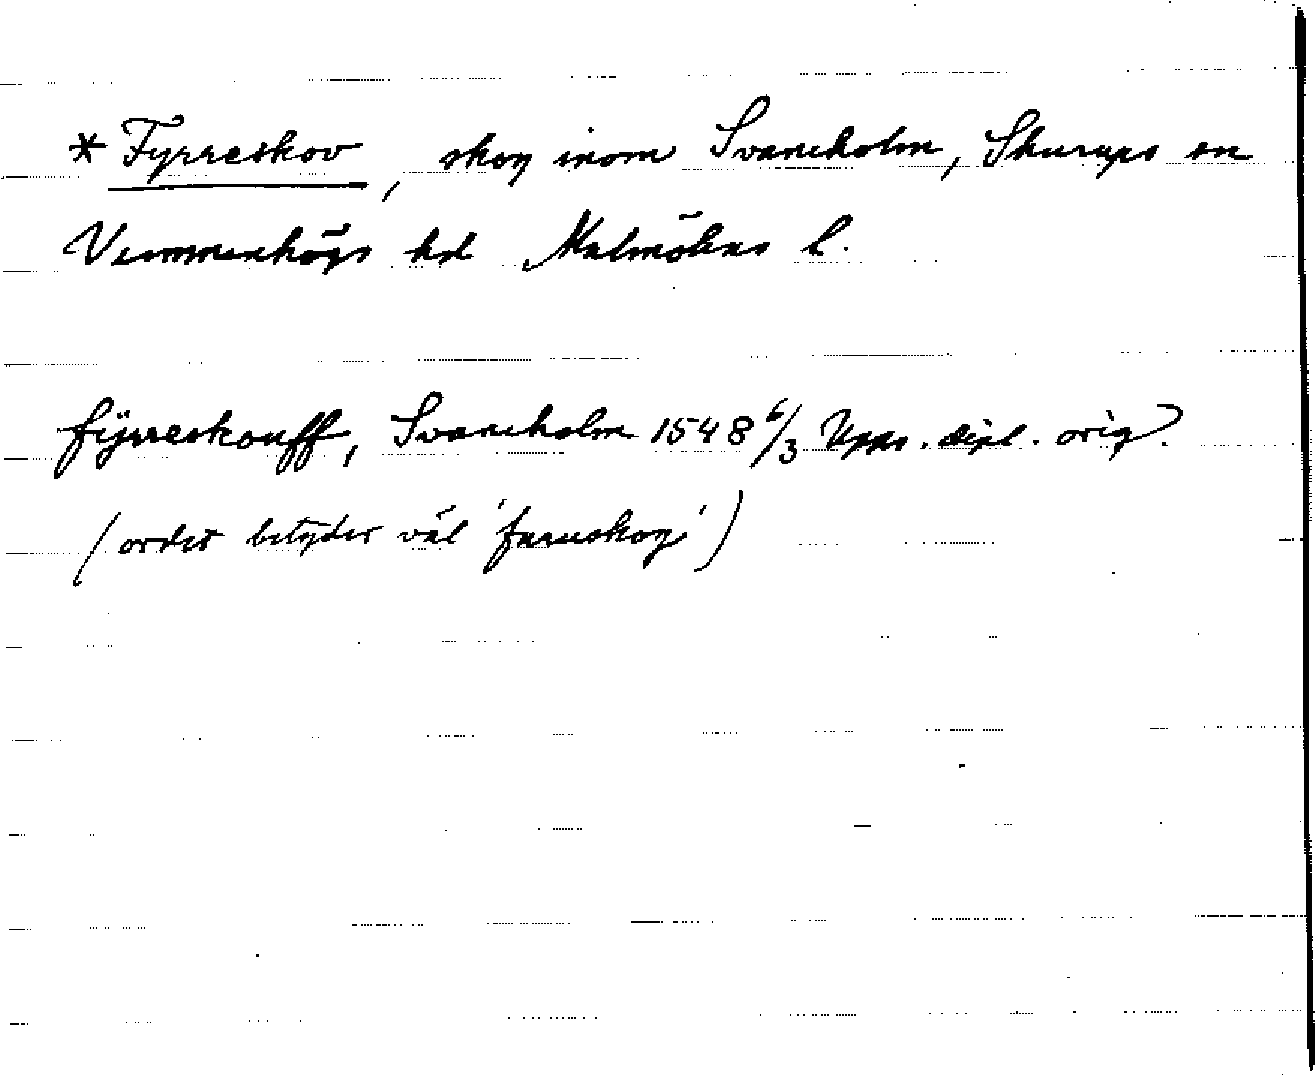 * Fyrreskov, skog inom Svaneholm, Skurups sn
Vemmenhögs hd Malmöhus l.
fÿrreskouff, Svaneholm 1548 6/3 Upps. dipl. orig.
(ordet betyder väl 'furuskog')